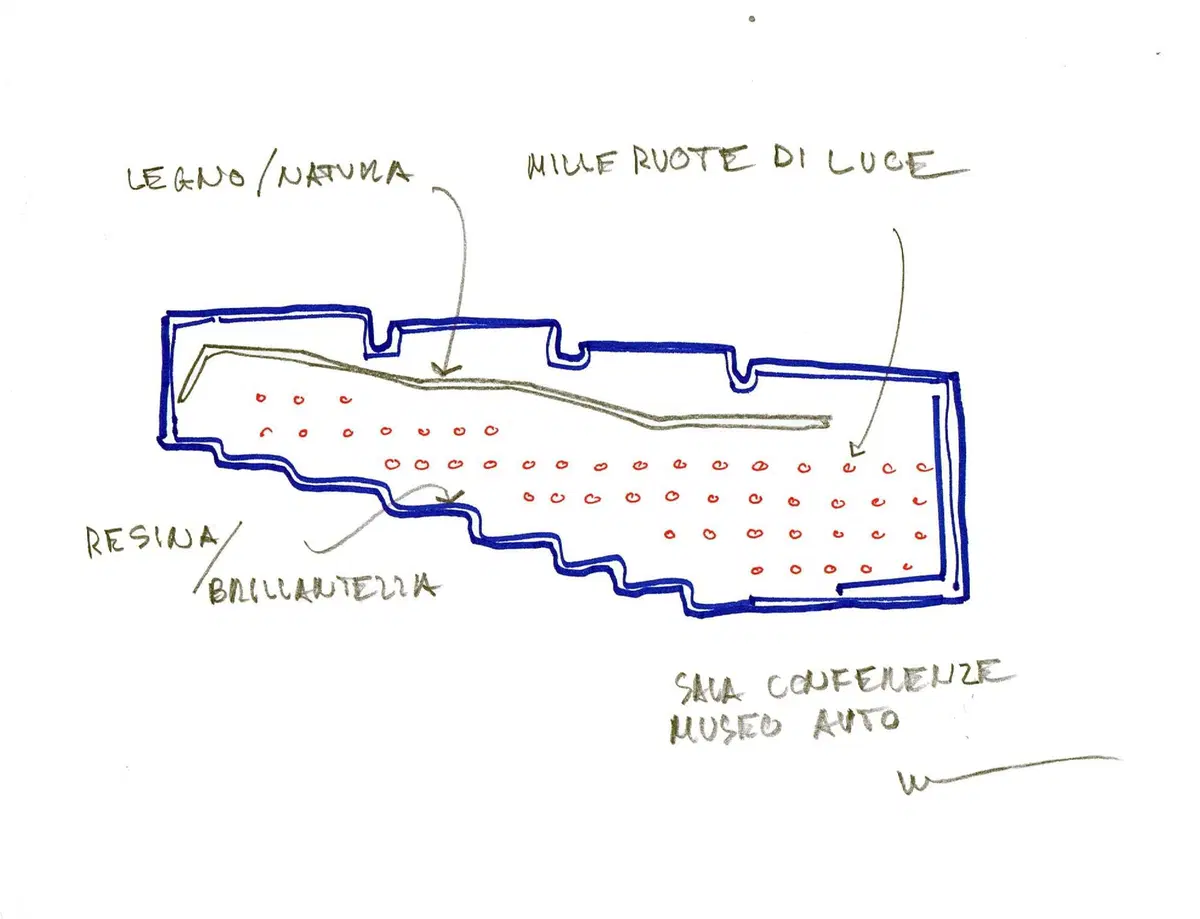 LEGNO/NATURA
MILLE RUOTE DI LUCE
RESINA/
BRILLANTEZZA
SALA CONFERENZE
MUSEO AUTO